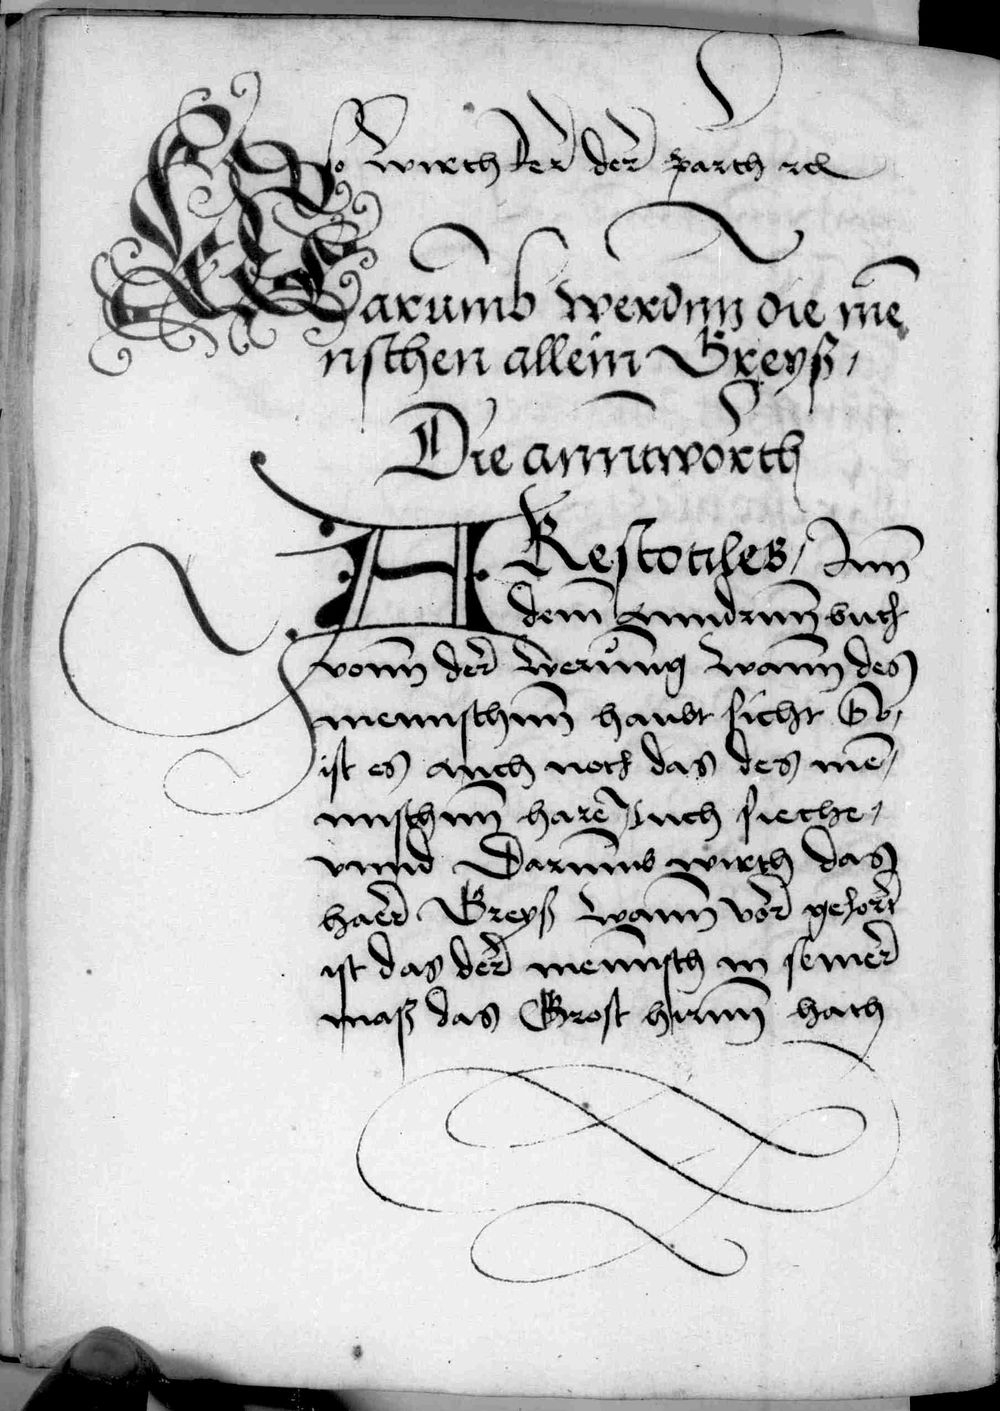 so wirth der der parth rc
Warumb werdnn die mē
nschen allein Greyß,
Die anntworth
ARestotiles, Inn
dem anndrnn buch
vonn der werung wann des
mennschnn haubt sicht So,
ist es auch noch das des mē,
nnschnn harē auch sieche,
vnnd Darumb wirth das
haer Greyß wann vor gehort
ist das der mennsch in seiner
maß das Grost hirnn hath